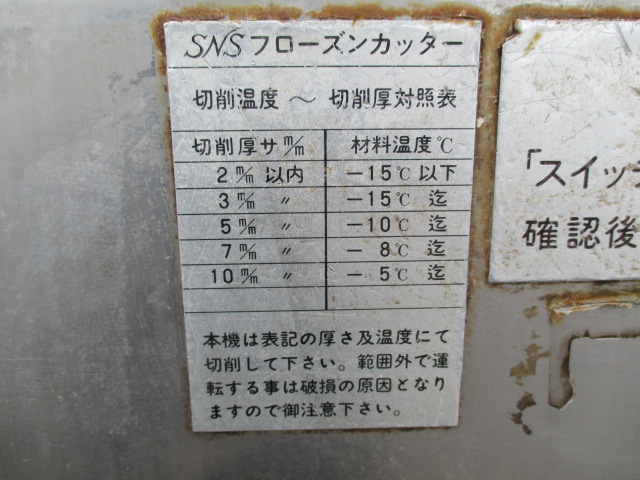 SNSフローズンカッター
切削温度 ～ 切削厚対照表
切削厚サ m/m 材料温度℃
2 m/m 以内 －15℃以下
3 m/m 〃 －15℃ 迄
5 m/m 〃 －10℃ 迄
7 m/m 〃 － 8℃ 迄
10 m/m 〃 － 5℃ 迄
本機は表記の厚さ及温度にて
切削して下さい。範囲外で運
転する事は破損の原因となり
ますので御注意下さい。
「スイッチ
確認後